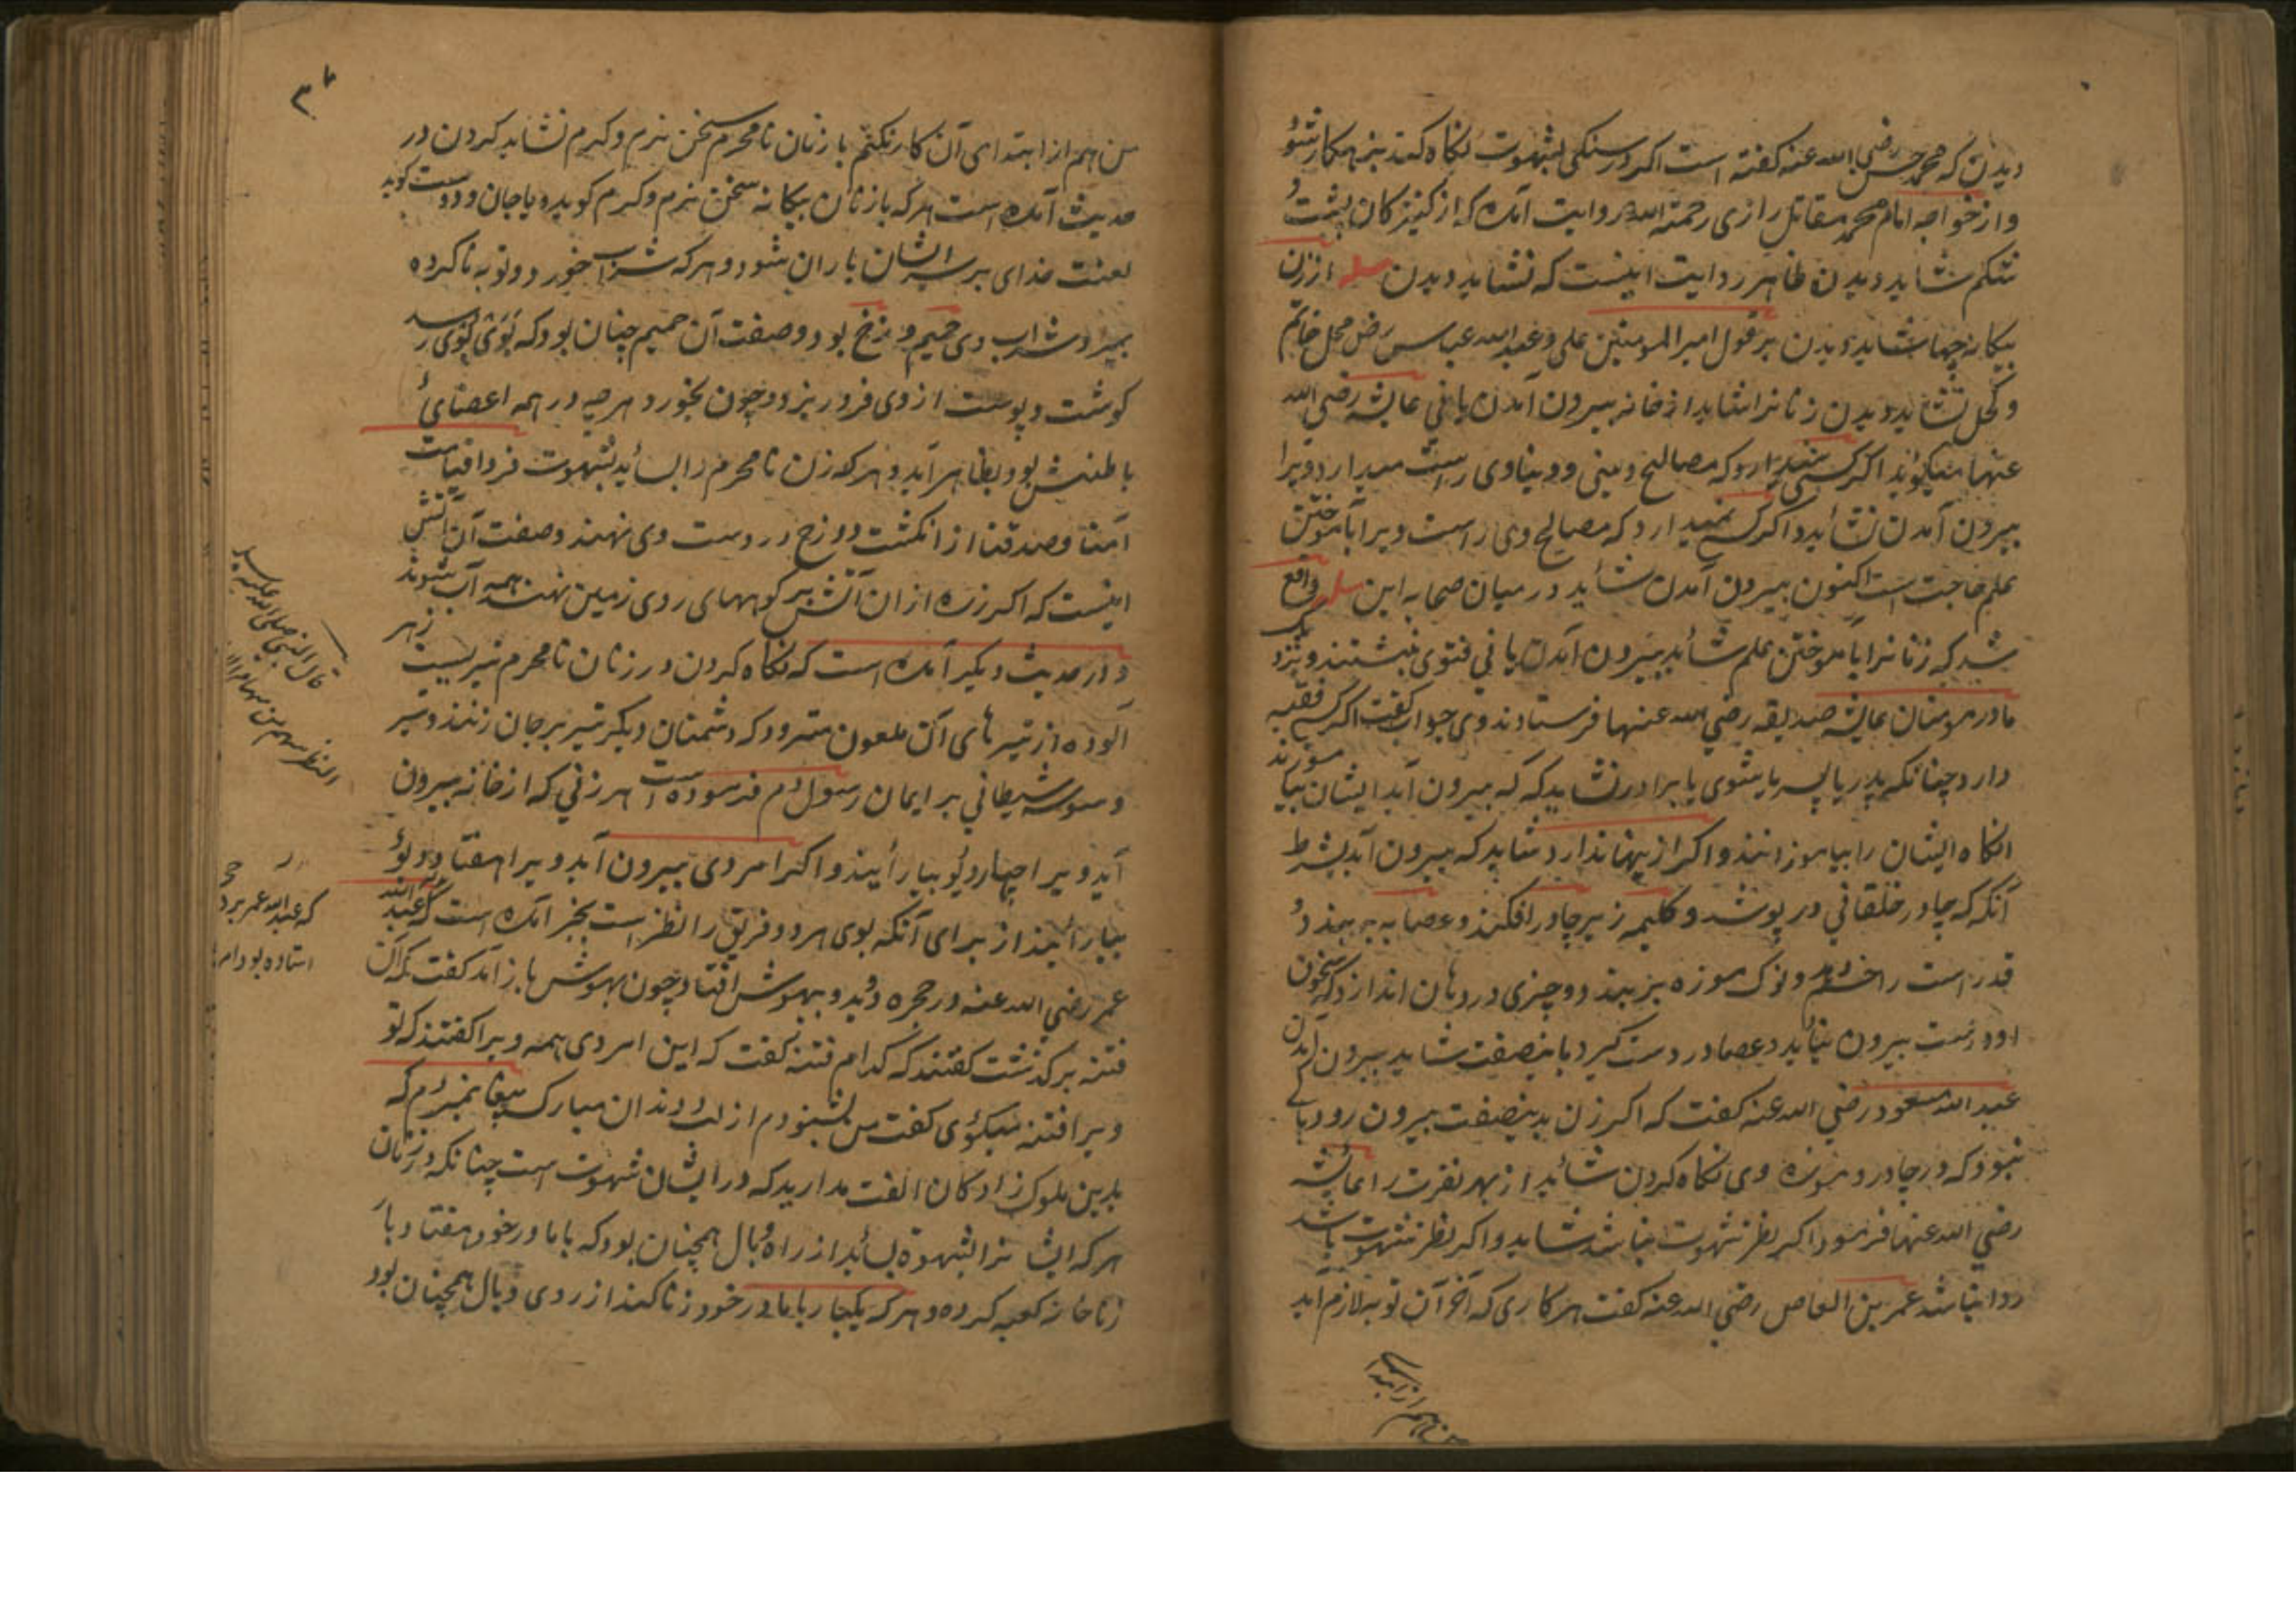 دیدن که محمد حسن رضی الله عنه کفته است اکر در سنکی بشهوت نکاه کند بزهکار شود
و از خواجه امام محمد مقاتل رازی رحمة الله روایت آمده که از کنیزکان پشت و
شکم شاید دیدن ظاهر روایت اینست که نشاید دیدن مسله از زن
بیکانه چها شاید دیدن بر قول امیر المومنین علی و عبد الله عباس رض محل خاتم
و کحل نشاید دیدن زنانرا شاید از خانه بیرون آمدن یا نی عایشه رضی الله
عنها میکوید اکر کسی نمیدارد که مصالح دینی و دنیاوی راست میدارد ویرا
بیرون آمدن نشاید و اکر کسی نمیدارد که مصالح وی راست ویرا بآموختن
علم حاجت است اکنون بیرون آمدن شاید در میان صحابه این مسله واقع
شد که زنانرا بآموختن علم شاید بیرون آمدن یا نی فتوی نبشتند و نزدیک
مادر مومنان عایشه صدیقه رضی الله عنها فرستادند وی جواب کفت اکر کسی فقیه
دارد چنانکه پدر یا پسر یا شوی یا برادر نشاید که که بیرون آید ایشان بیاموزند
انکاه ایشان را بیاموزانند و اکر ازینها ندارد شاید که بیرون آید بشرط
آنکه که چادر خلقانی در پوشد و کلیمه زیر چادر افکند و عصابه بربندد و
قد راست را خم دهد و نوک موزه بربندد و چیزی در دهان اندازد که سخن
او درست بیرون نیاید و عصا در دست کیرد باینصفت شاید بیرون آمدن
عبد الله مسعود رضی الله عنه کفت که اکر زن بدینصفت بیرون رود باکی
نبود که در چادر و موزه وی نکاه کردن شاید از بهر نفرت را عایشه
رضی الله عنها فرمود اکر نظر شهوت نباشد شاید و اکر نظر شهوت باشد
روا نباشد عمر بن العاص رضی الله عنه کفت هر کاری که آخر آن توبه لازم اید
من هم از ابتدای آن کار نکنم با زنان نامحرم سخن نرم و کرم نشاید کردن در
حدیث آمده است هر که با زنان بیکانه سخن نرم و کرم کوید و یا جان و دوست کوید
لعنت خدای بر سر ایشان باران شود و هر که شراب خورد و توبه ناکرده
بمیرد شراب وی حمیم دوزخ بود و صفت آن حمیم چنان بود که بوی بروی رسد
کوشت و پوست از وی فرو ریزد و چون بخورد هر چه در همه اعضای
باطنش بود بظاهر آید و هر که زن نامحرم را بساید بشهوت فردا قیامت
آمنا و صدقنا از انکشت دوزخ در دست وی نهند و صفت آن آتش
اینست که اکر زره از ان آتش بر کوههای روی زمین نهند همه آب شوند
و در حدیث دیکر آمده است که نکاه کردن در زنان نامحرم تیریست زهر
آلوده از تیرهای آن ملعون متمرد که دشمنان دیکر تیر بر جان زنند و تیر
وسوسه شیطانی بر ایمان رسول م فرموده است هر زنی که از خانه بیرون
آید ویرا چهار دیو بیارایند و اکر امردی بیرون آید ویرا هفتاد دیو
بیارایند از برای آنکه بوی هر دو فریق را نظر است بخبر آمده است که عبد الله
عمر رضی الله عنه در حجره دوید و بیهوش افتاد چون بهوش باز آمد کفت که آن
فتنه بر کذشت کفتند که کدام فتنه کفت که این امردی همه ویرا کفتند که تو
ویرا فتنه میکوی کفت من بشنودم از لب و دندان مبارک پیغامبر م که
بدین ملوک زادکان الفت مدارید که در ایشان شهوت است چنانکه در زنان
هر که ایشانرا بشهوة بساید از راه وبال همچنان بود که با مادر خود هفتاد بار
زنا خانه کعبه کرده و هر که یکبار با مادر خود زنا کند از روی وبال همچنان بود
قال النبی صلی الله علیه
النظر سهم من سهام
که عبد الله عمر بر در
استاده بود